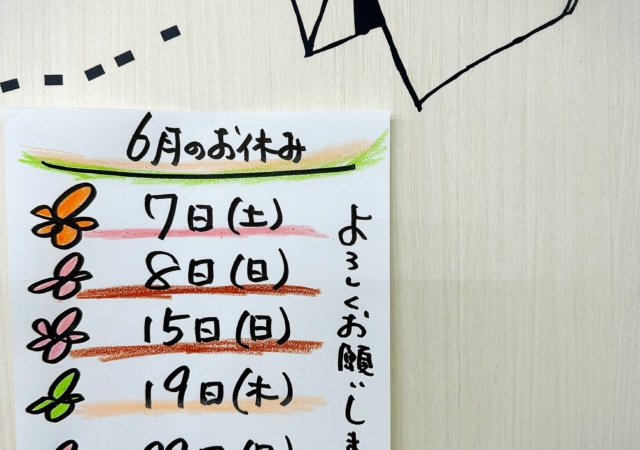 6月のお休み
7日(土)
8日(日)
15日(日)
19日(木)
よろしくお願いしま